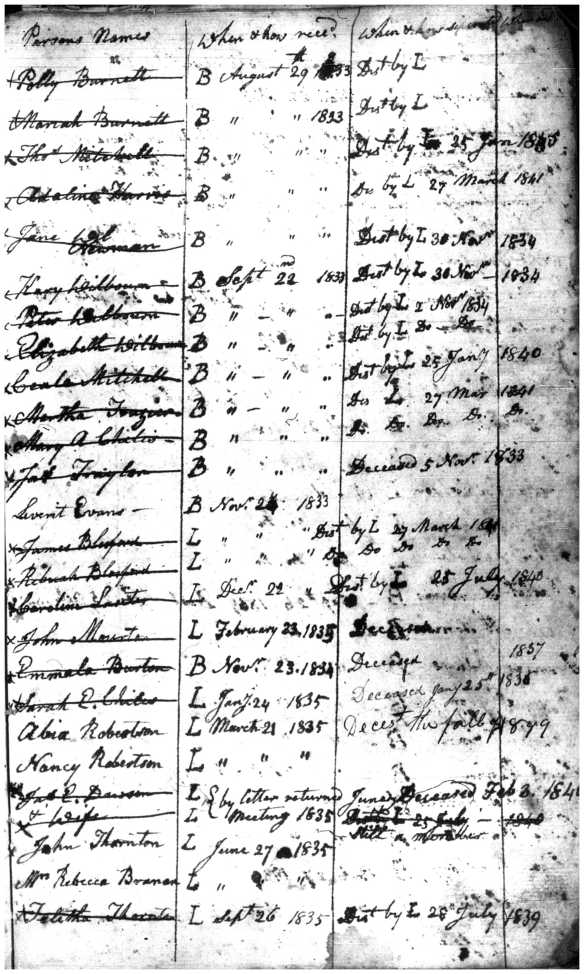 Persons Names When & how recd. When & how
Polly Burnett B August 29th 1833 Dist by L
Mariah Burnett B " " 1823 Dist by L
Thos Mitchell B " " " Dist by L 25 Jan 1845
Adaline Harris B " " " Dis by L 27 March 1841
Jane
Newman B " " " Dist by L 30 Novr 1834
Kary Wilbourn B Sept 22nd 1833 Dist by L 30 Novr 1834
Peter Wilbourn B " — " " Dist by L 2 Novr 1834
Elizabeth Wilbourn B " — " " Dist by L Do — Do
Ceale Mitchell B " — " " Dist by L 25 Jany 1840
Martha Frazier B " — " " Dis L 27 Mar 1841
Mary A Chiles B " " " Do. Do. Do. Do. Do.
Jas Traylor B " " " Deceased 5 Novr. 1833
Evans B Novr. 24 1833
James Blosford L " " " Dist by L 27 March 1841
Blosford L " " " Do Do Do Do Do
Caroline L Decr. 22 Dist by L 25 July 1840
John L February 23. 1835 Deceased
Emmala Burton B Novr. 23. 1834 Deceased 1837
Sarah E. Chiles L Jany. 24 1835 Deceased Jany 25th 1836
Abia Robertson L March 21 1835 Decest the fall of 1849
Nancy Robertson L " " "
Jas E. Dawson L by letter returned June Deceased Feb 3. 184
& Wife L Meeting 1835 Dist by L 25 July — 1840
Still a member
John Thornton L June 27 1835
Mrs Rebecca Branan L " " "
Talitha Thornton L Sept 26 1835 Dist by L 28th July 1839